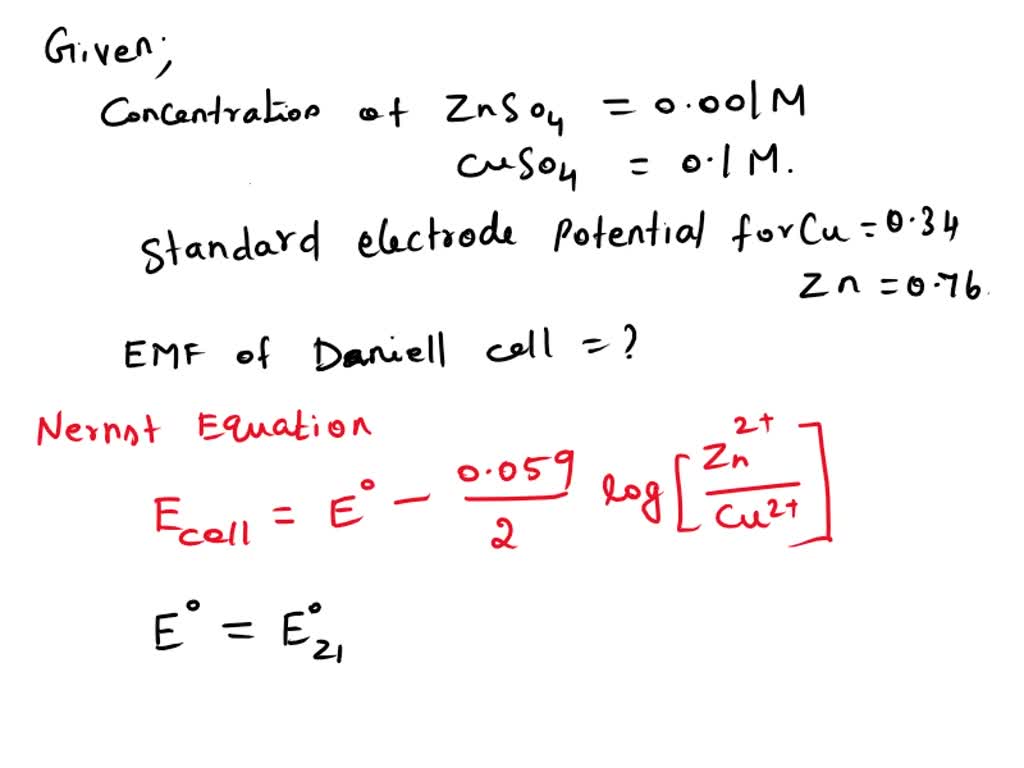 Given;
Concentration of ZnSO4 = 0.001M
CuSO4 = 0.1M.
Standard electrode potential for Cu = 0.34
Zn = 0.76.
EMF of Daniell cell = ?
Nernst Equation
Ecell = E° - 0.059/2 log[Zn2+/Cu2+]
E° = E°Z1